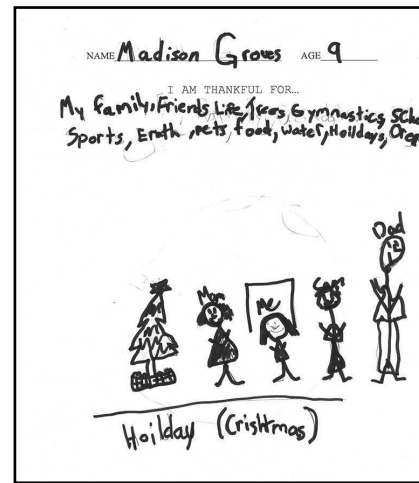 NAME Madison Groves AGE 9
I AM THANKFUL FOR...
My family, Friends, Life, Trees, Gymnastics, Scho
Sports, Erath, pets, food, water, Hoildays, Orga
Dad
Mom
Me
Cam
Hoilday (Crishtmas)